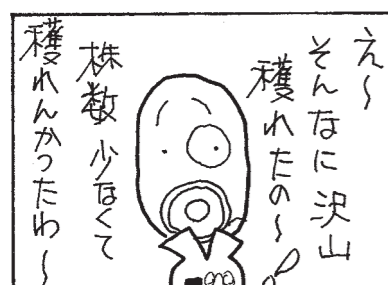 え～
そんなに沢山
穫れたの～
株数少なくて
穫れんかったわ～